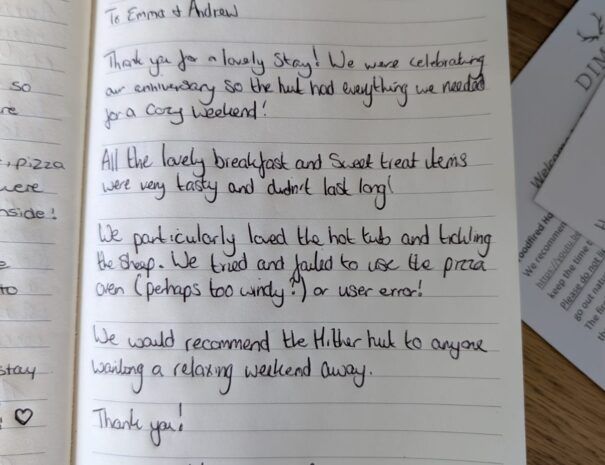 To Emma & Andrew
Thank you for a lovely stay! We were celebrating
our anniversary so the hut had everything we needed
for a cozy weekend!
All the lovely breakfast and sweet treat items
were very tasty and didn't last long!
We particularly loved the hot tub and tickling
the sheep. We tried and failed to use the pizza
oven (perhaps too windy?) or user error!
We would recommend the Hither hut to anyone
wanting a relaxing weekend away.
Thank you!
so
re
, pizza
were
nside!
e
to
stay
! ♡
DIM
Welcome
oodfired Ho
We recommen
https://youtu.be
keep the time o
Please do not l
go out nat
The fire